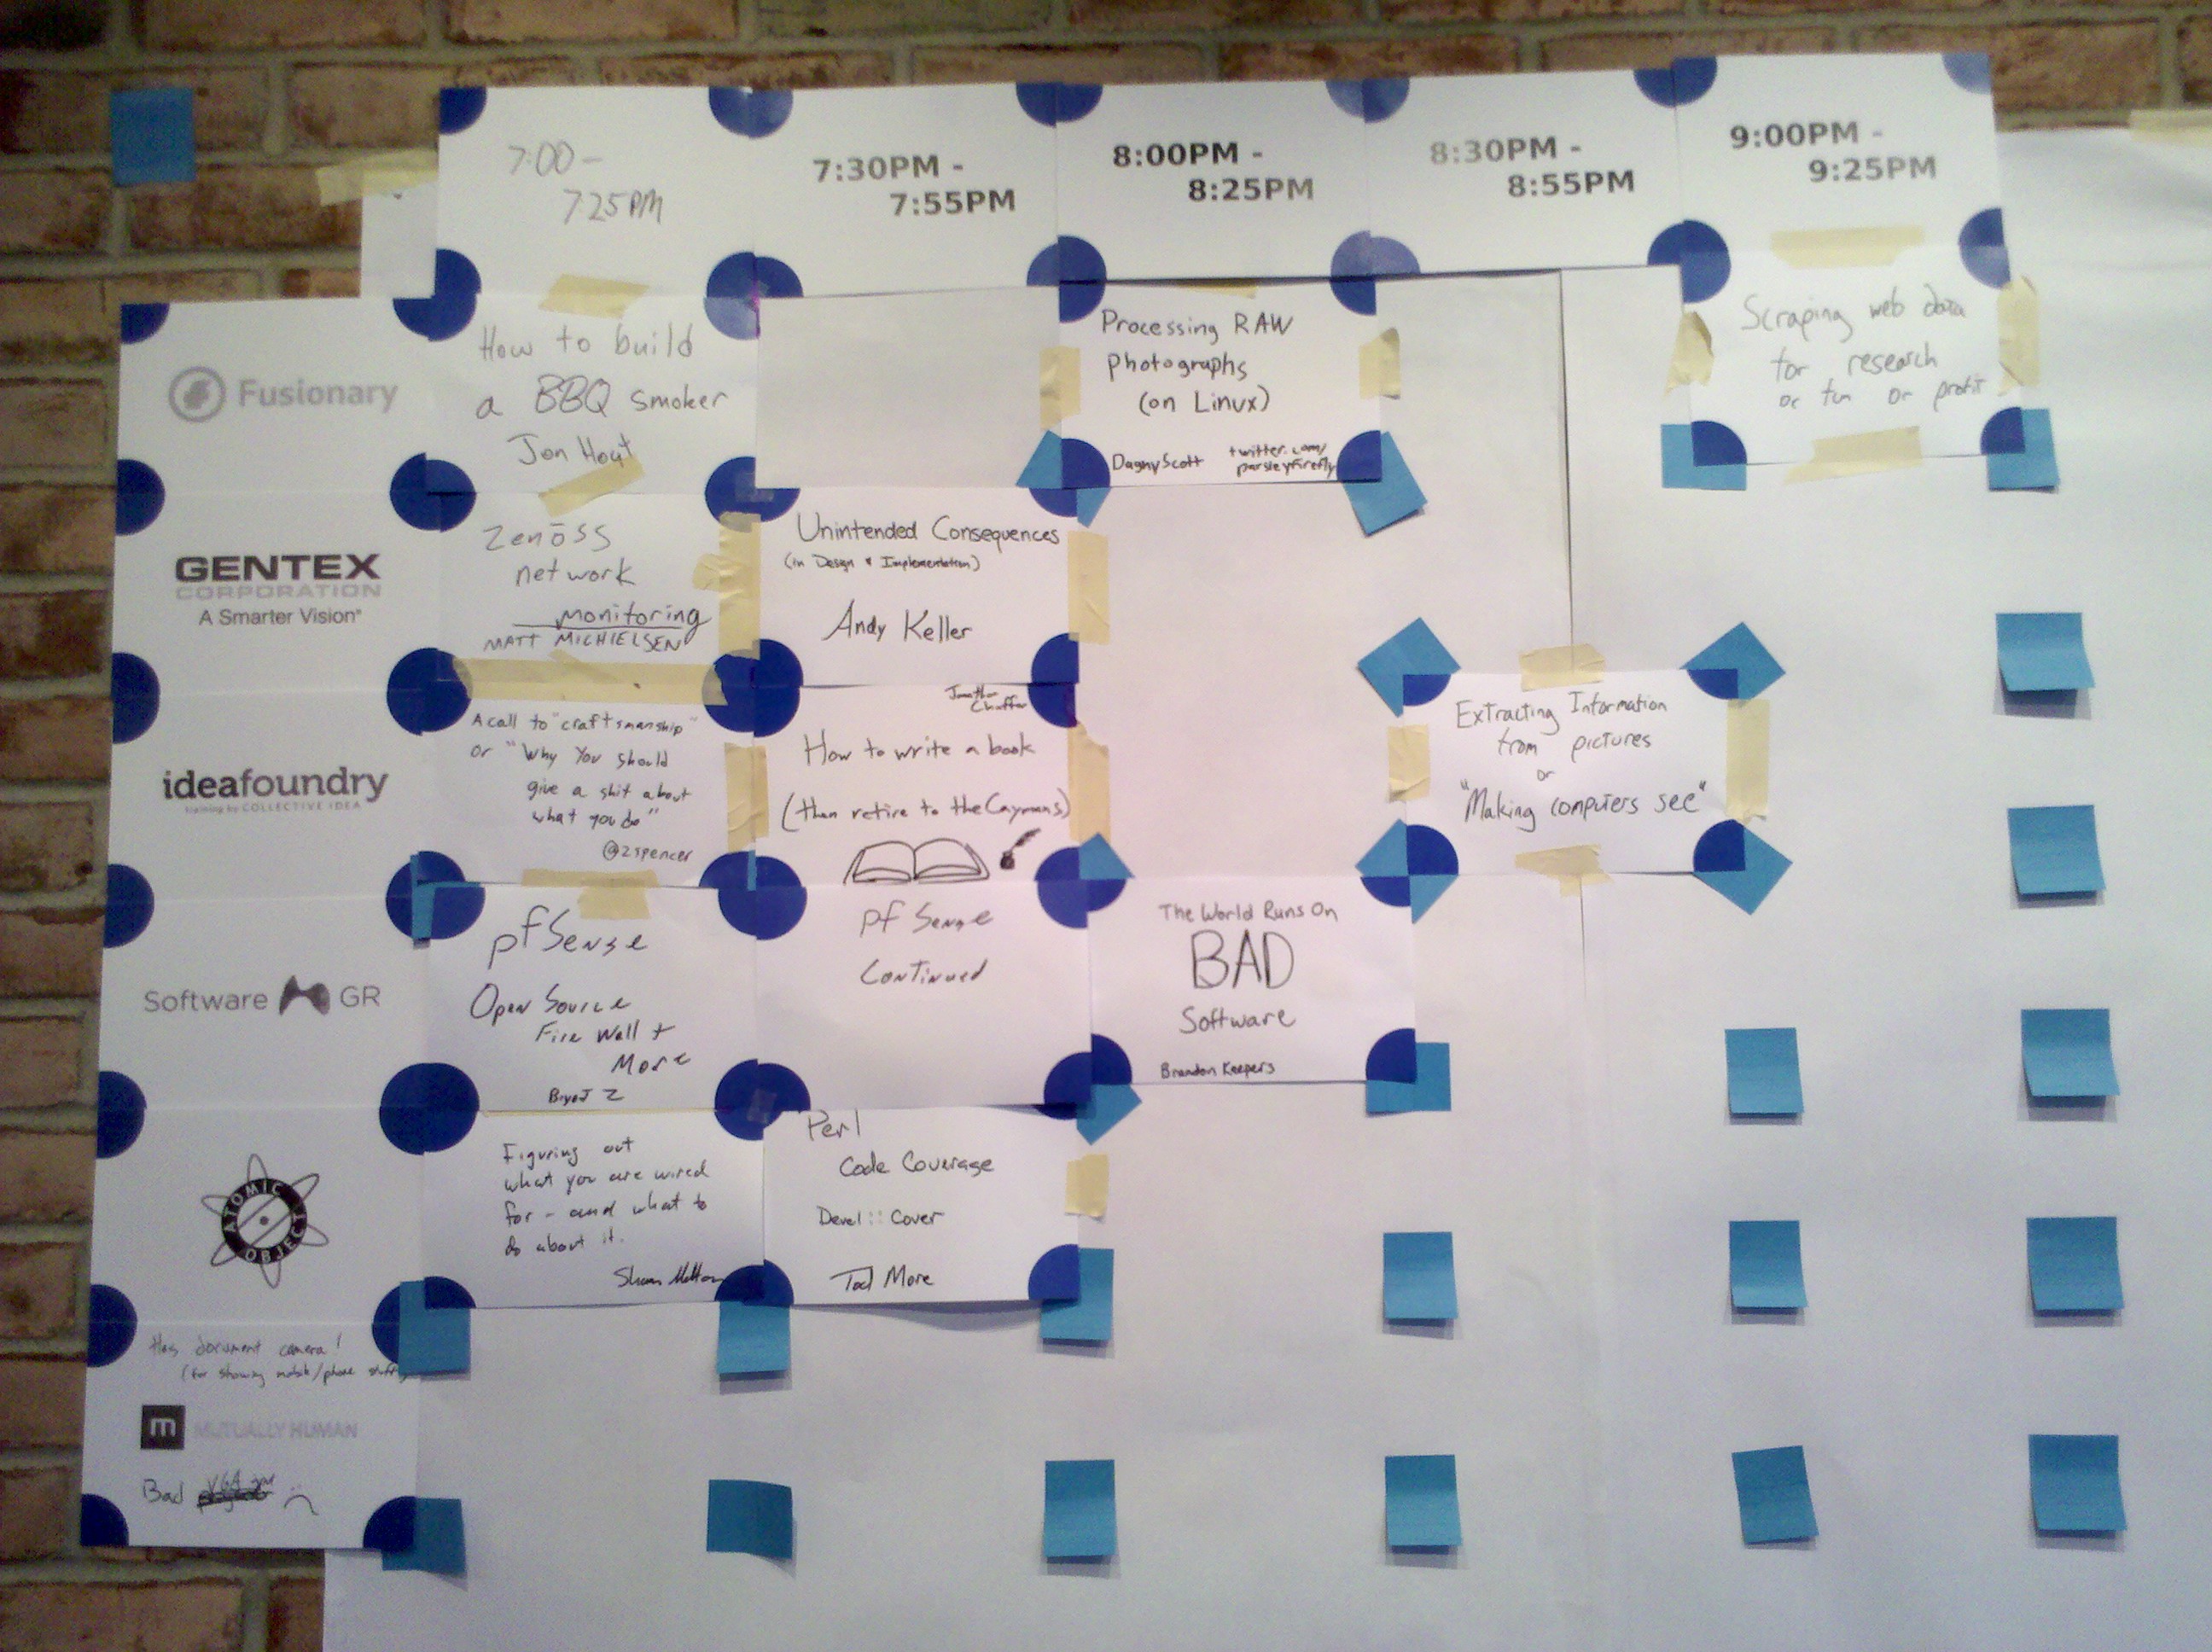 7:00-
7:25PM
7:30PM -
7:55PM
8:00PM -
8:25PM
8:30PM -
8:55PM
9:00PM -
9:25PM
Fusionary
How to build
a BBQ smoker
Jon Hout
Processing RAW
Photographs
(on Linux)
Dagny Scott
twitter.com/
parsleyfirefly
Scraping web data
for research
or fun or profit
GENTEX
CORPORATION
A Smarter Vision®
Zenoss
network
monitoring
MATT MICHIELSEN
Unintended Consequences
(in Design & Implementation)
Andy Keller
ideafoundry
training by COLLECTIVE IDEA
A call to "craftsmanship"
or "Why You should
give a shit about
what you do"
@zspencer
Jonathan
Chaffer
How to write a book
(then retire to the Caymans)
Extracting Information
from pictures
or
"Making computers see"
Software GR
pfSense
Open Source
Fire Wall +
More
Z
pfSense
Continued
The World Runs On
BAD
Software
Brandon Keepers
ATOMIC
OBJECT
Figuring out
what you are wired
for - and what to
do about it.
Perl
Code Coverage
Devel::Cover
More
Has document camera!
(for showing mobile/phone stuff)
m MUTUALLY HUMAN
Bad